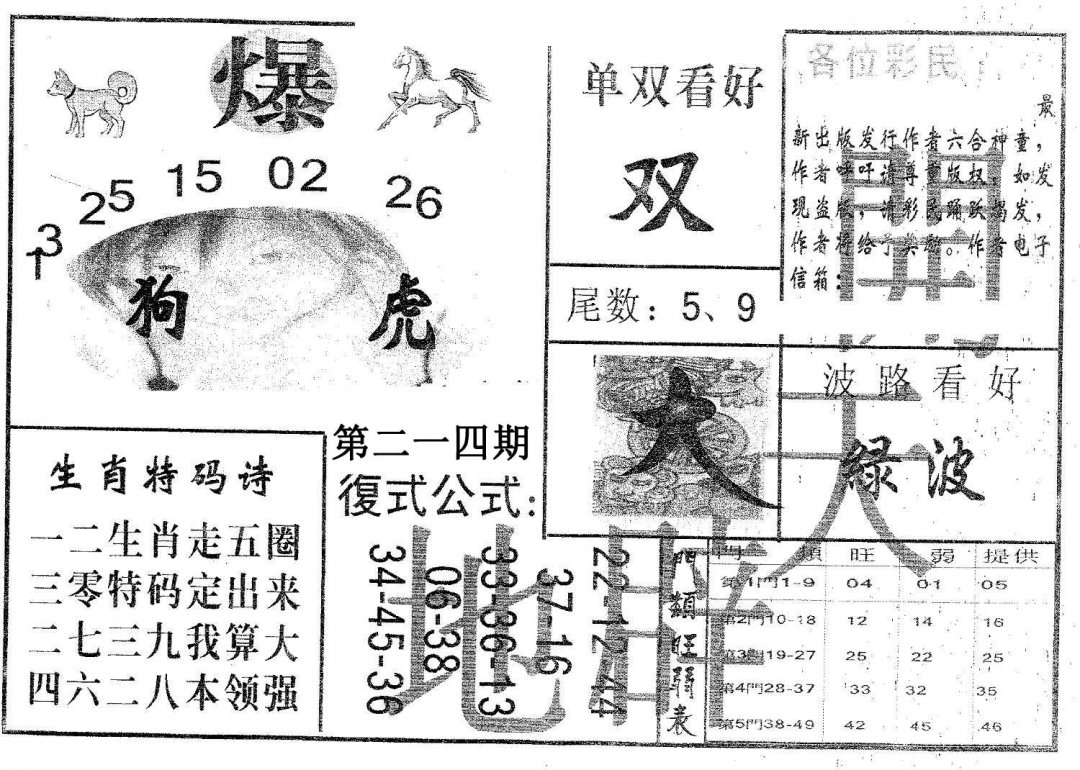 爆
13 25 15 02 26
狗 虎
生肖特码诗
一二生肖走五圈
三零特码定出来
二七三九我算大
四六二八本领强
第二一四期
復式公式:
34-45-36
06-38
33-36-13
37-16
22-12-44
单双看好
双
尾数：5、9
大
各位彩民：
最
新出版发行作者六合神童，
作者呼吁请尊重版权，如发
现盗版，请彩民踊跃揭发，
作者将给予奖励。作者电子
信箱：
波路看好
綠波
門類旺弱表
門 類 旺 弱 提供
第1門1-9 04 01 05
第2門10-18 12 14 16
第3門19-27 25 22 25
第4門28-37 33 32 35
第5門38-49 42 45 46
天
地